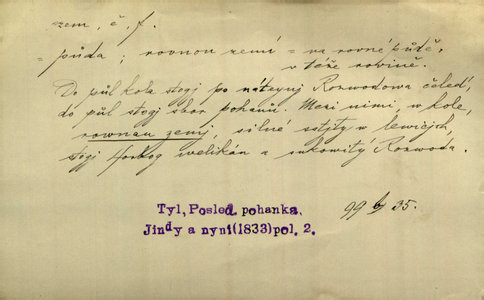 zem, ě, f.
= půda; rovnou zemí = na rovné půdě,
v téže rovině.
Do půl kola stogj po nátcynj Rozwodowa čeleď,
do půl stogj sbor pohanů. Mezi nimi, w kole,
rownau zemj, silné sstjty w lewicjch,
stogj welikán a rukowitý Rozwoda.
Tyl, Posled. pohanka.
Jindy a nyní(1833)pol. 2.
99 b/ 35.